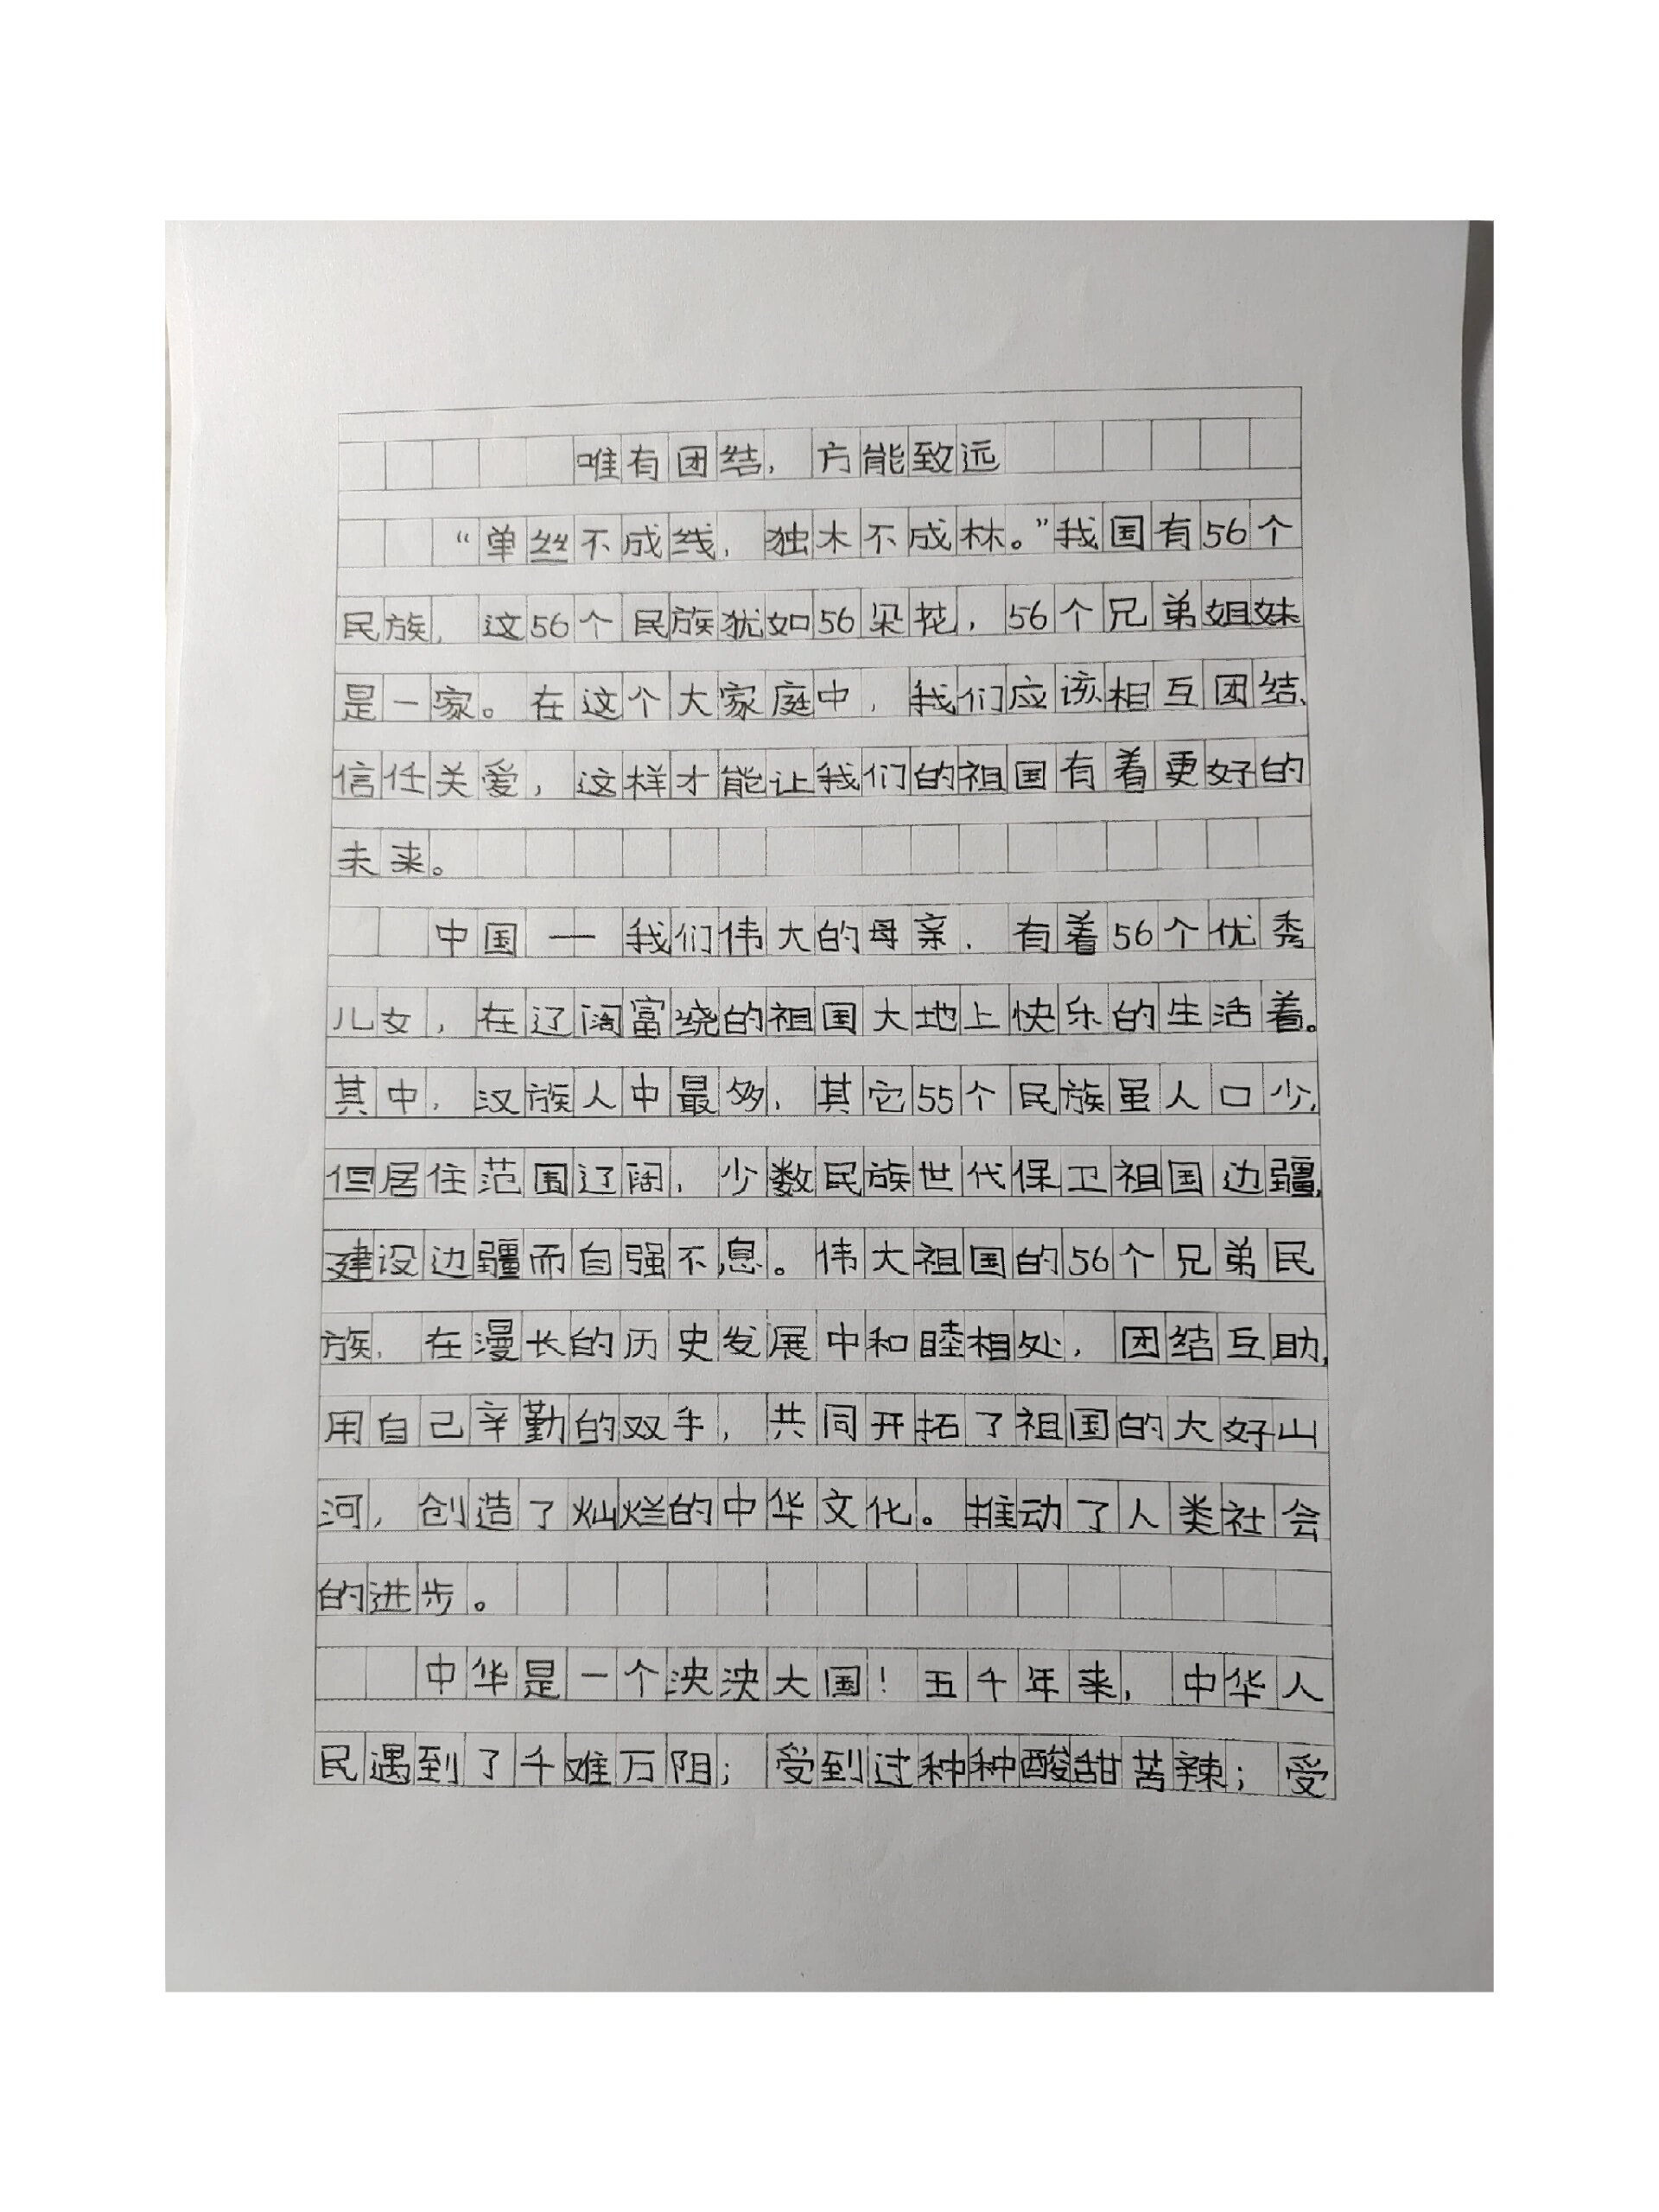 唯有团结，方能致远
“单丝不成线，独木不成林。”我国有56个
民族，这56个民族犹如56朵花，56个兄弟姐妹
是一家。在这个大家庭中，我们应该相互团结、
信任关爱，这样才能让我们的祖国有着更好的
未来。
中国—我们伟大的母亲，有着56个优秀
儿女，在辽阔富绕的祖国大地上快乐的生活着。
其中，汉族人中最多，其它55个民族虽人口少，
但居住范围辽阔，少数民族世代保卫祖国边疆，
建设边疆而自强不息。伟大祖国的56个兄弟民
族，在漫长的历史发展中和睦相处，团结互助，
用自己辛勤的双手，共同开拓了祖国的大好山
河，创造了灿烂的中华文化。推动了人类社会
的进步。
中华是一个泱泱大国！五千年来，中华人
民遇到了千难万阻；受到过种种酸甜苦辣；受